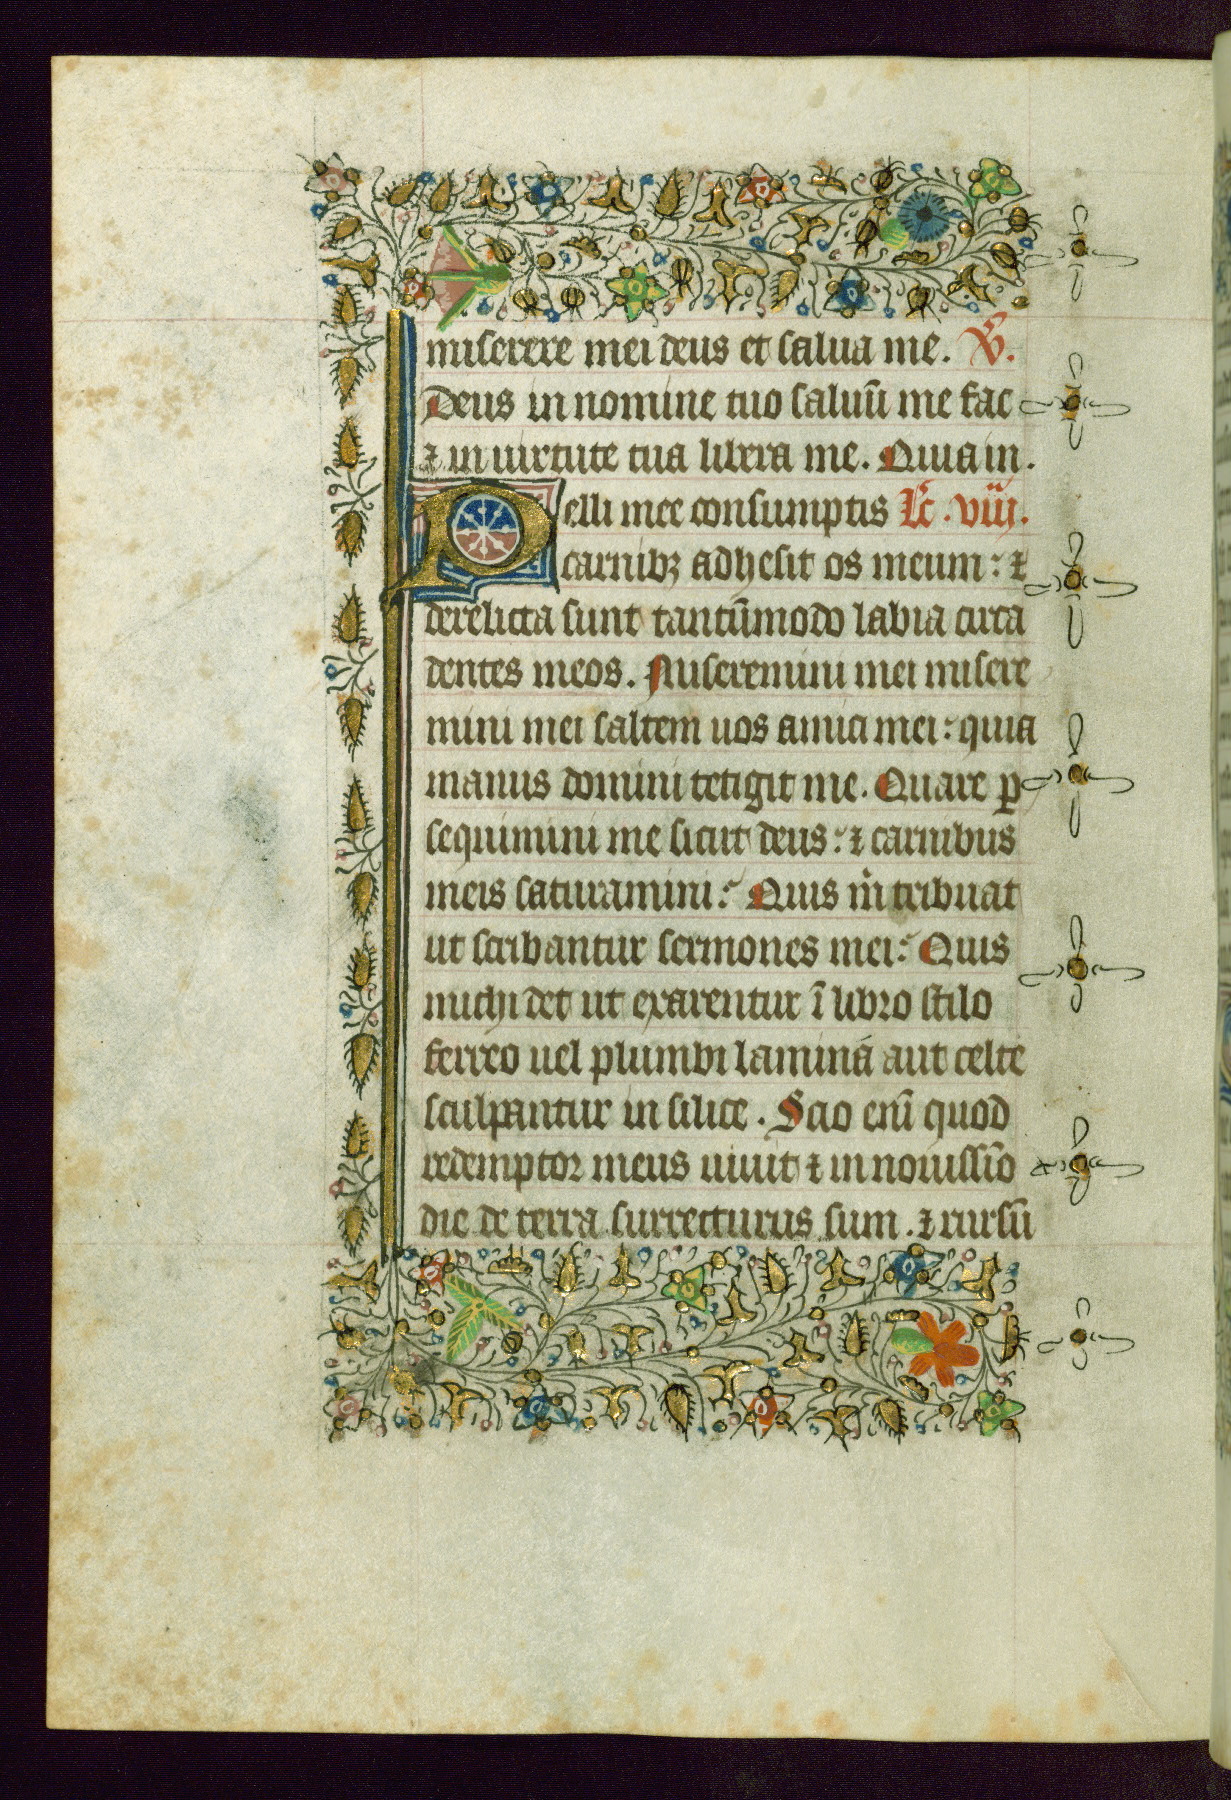 miserere mei deus et salua me. V̄.
Deus in nomine tuo saluū me fac
⁊ in uirtute tua libera me. Quia in.
Pelli mee consumptis Lc̄. viij.
carnibꝫ adhesit os meum: ⁊
derelicta sunt tantūmodo labia circa
dentes meos. Miseremini mei misere
mini mei saltem uos amici mei: quia
manus domini tetigit me. Quare ꝑ
sequimini me sicut deus: ⁊ carnibus
meis saturamini: Quis m̄ tribuat
ut scribantur sermones mei: Quis
michi det ut exarentur ī libro stilo
ferreo uel plumbi laminā aut celte
sculpantur in silice. Scio enī quod
redemptor meus uiuit ⁊ in nouissīo
die de terra surrecturus sum. ⁊ rursū